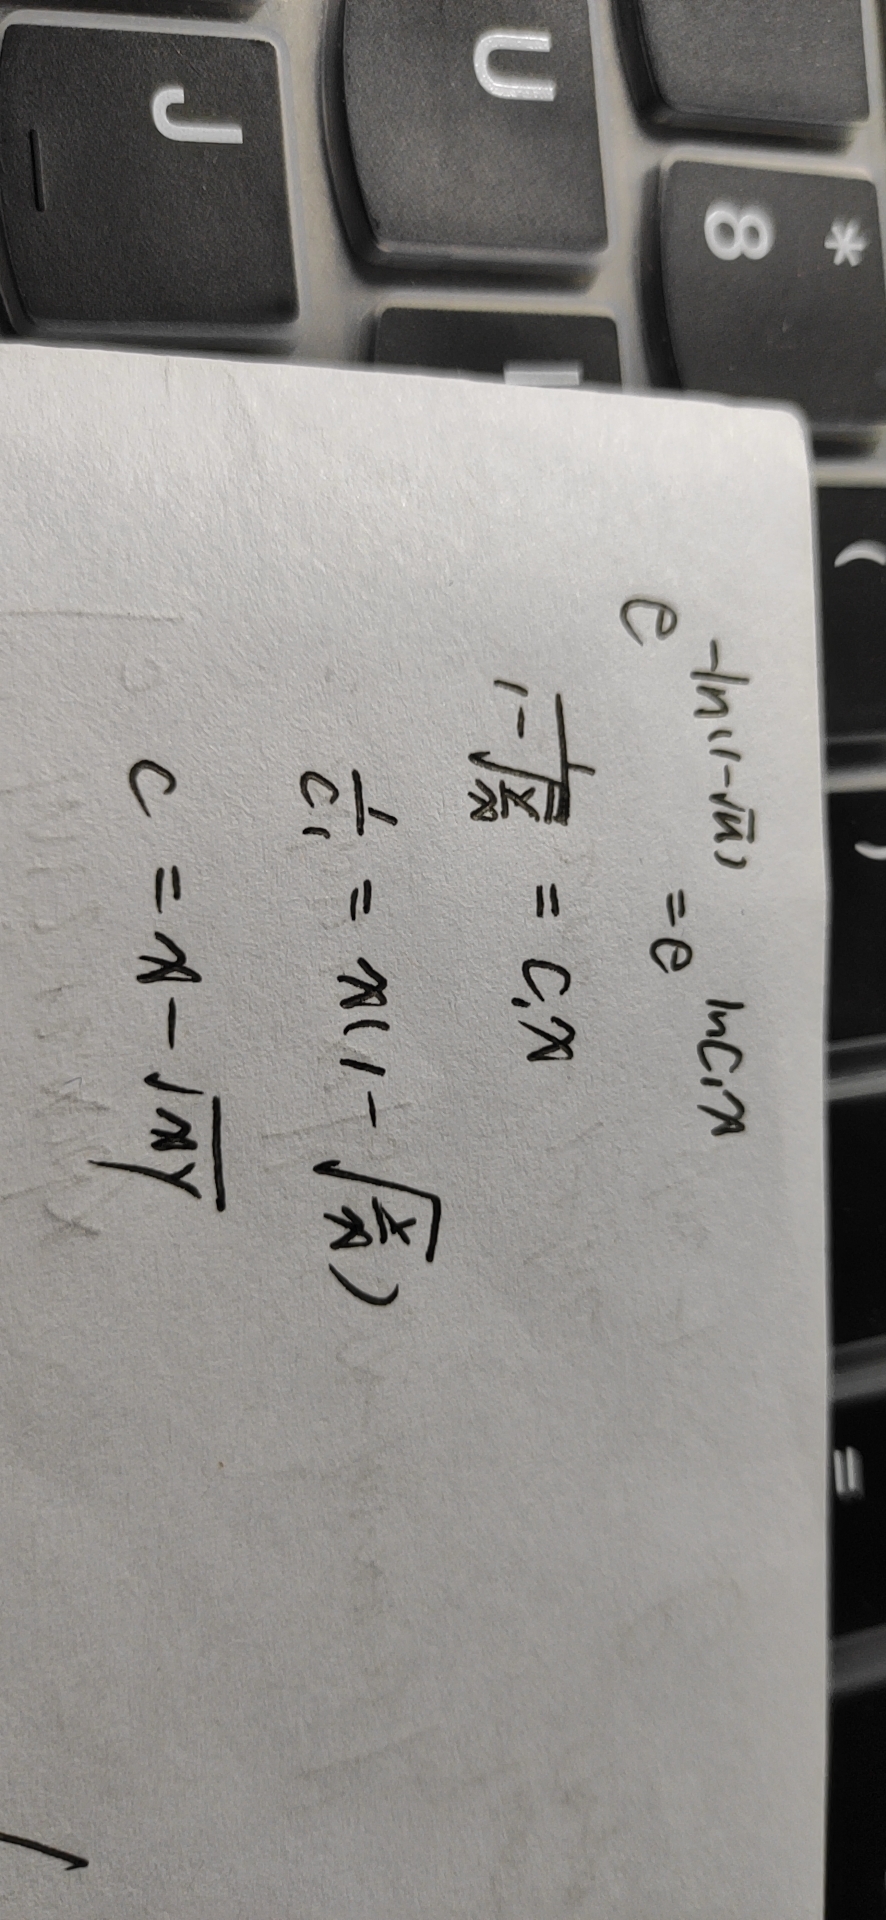 * ( ) =
8
U
J
e^{-ln(1-√u)} = e^{lnC₁x}
1/(1-√(y/x)) = C₁x
1/C₁ = x(1-√(y/x))
C = x-√(xy)